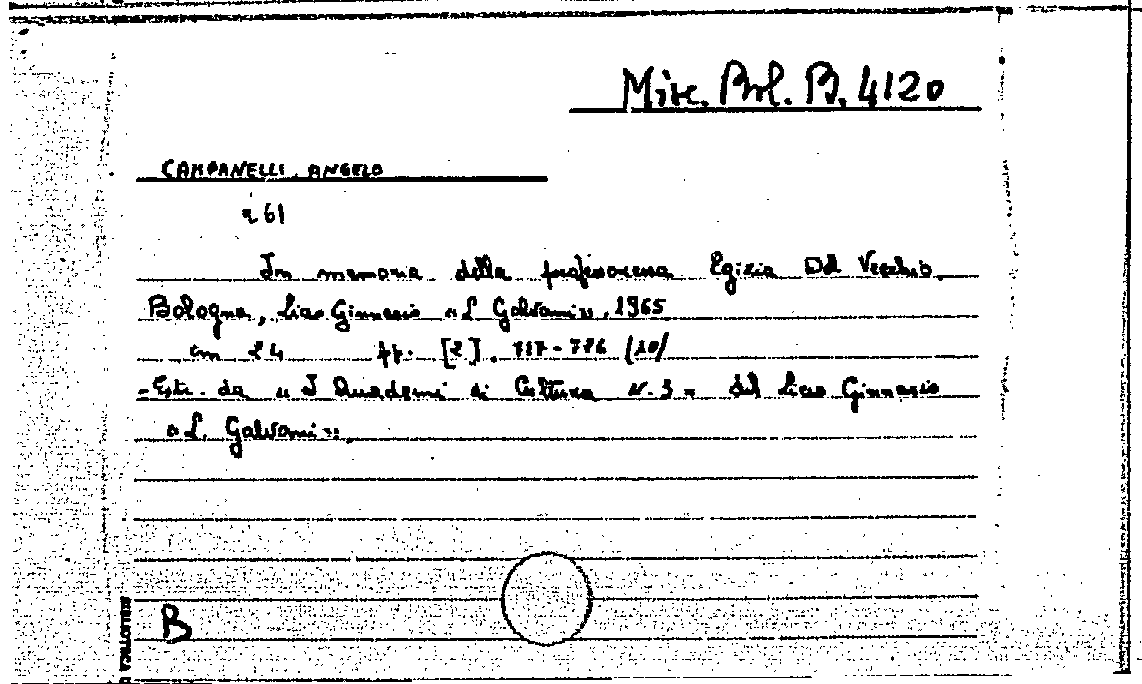 Misc. Bol. B. 4120
CAMPANELLI, ANGELO
261
In memoria della professoressa Egizia Del Vecchio.
Bologna, Liceo Ginnasio « L. Galvani », 1965
cm 24 pp. [2], 717-726 (10)
- Estr. da « I Quaderni di Cultura N. 3 » del Liceo Ginnasio
« L. Galvani ».
B